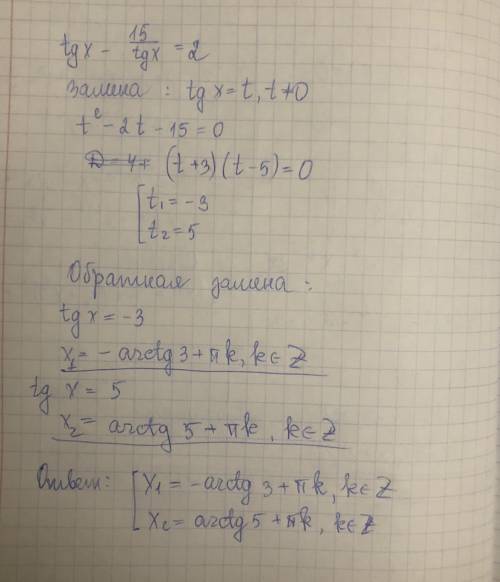 tg x - 15/tg x = 2
Замена : tg x = t, t ≠ 0
t² - 2t - 15 = 0
D = 4+ (t+3)(t-5) = 0
[ t₁ = -3
t₂ = 5
Обратная замена :
tg x = -3
x₁ = - arctg 3 + πk, k ∈ Z
tg x = 5
x₂ = arctg 5 + πk, k ∈ Z
Ответ: [ x₁ = -arctg 3 + πk, k ∈ Z
x₂ = arctg 5 + πk, k ∈ Z